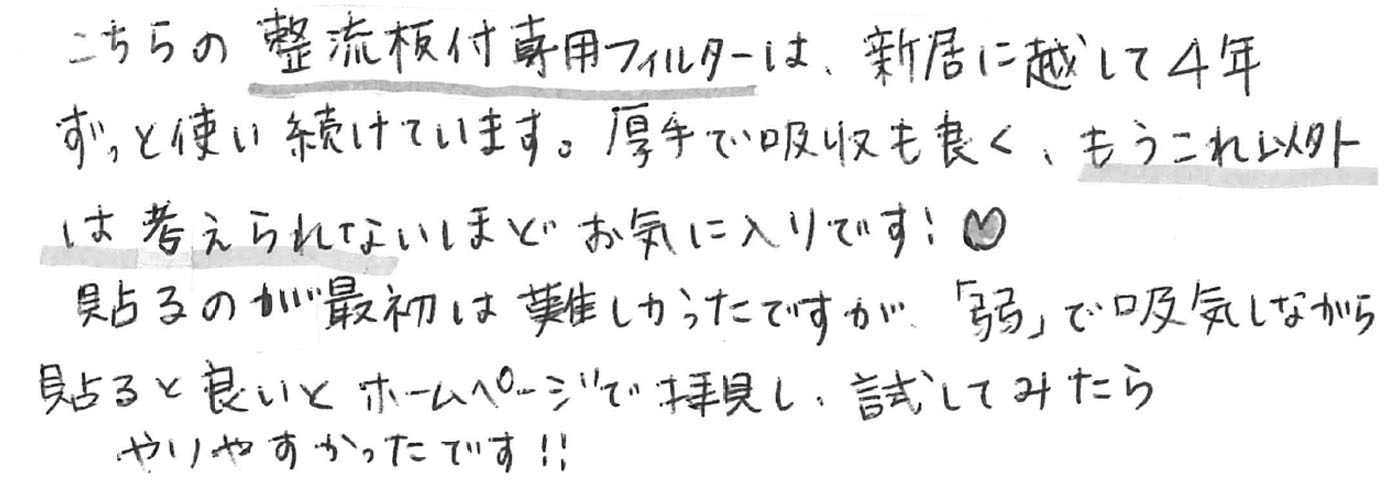 こちらの整流板付専用フィルターは、新居に越して4年
ずっと使い続けています。厚手で吸収も良く、もうこれ以外
は考えられないほどお気に入りです!♡
貼るのが最初は難しかったですが、「弱」で吸気しながら
貼ると良いとホームページで拝見し、試してみたら
やりやすかったです!!